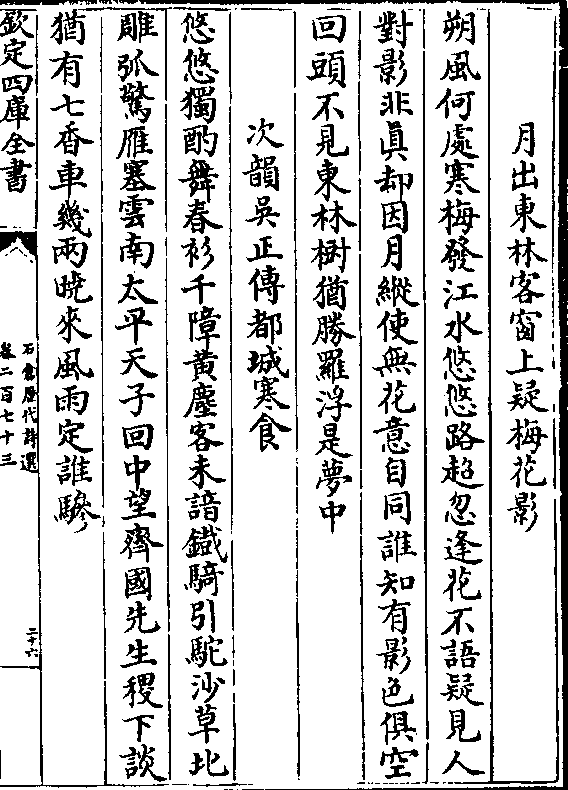 月出東林客窗上疑梅花影
朔風何處寒梅發江水悠悠路超忽逢花不語疑見人
對影非真却因月縱使無花意自同誰知有影色俱空
回頭不見東林樹猶勝羅浮是夢中
次韻吳正傳都城寒食
悠悠獨酌舞春衫千障黃塵客未諳鐵騎引駝沙草北
雕弧驚雁塞雲南太平天子回中望齊國先生稷下談
猶有七香車幾兩曉來風雨定誰驂
欽定四庫全書
石倉歷代詩選
卷二百七十三
二十六